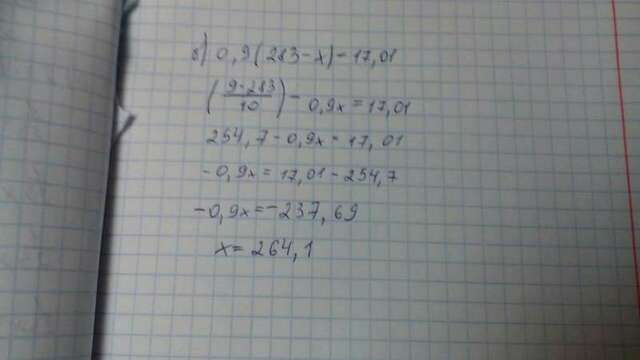 в) 0,9(283-x)=17,01
(9·283/10) - 0,9x=17,01
254,7-0,9x=17,01
-0,9x=17,01-254,7
-0,9x=-237,69
x=264,1